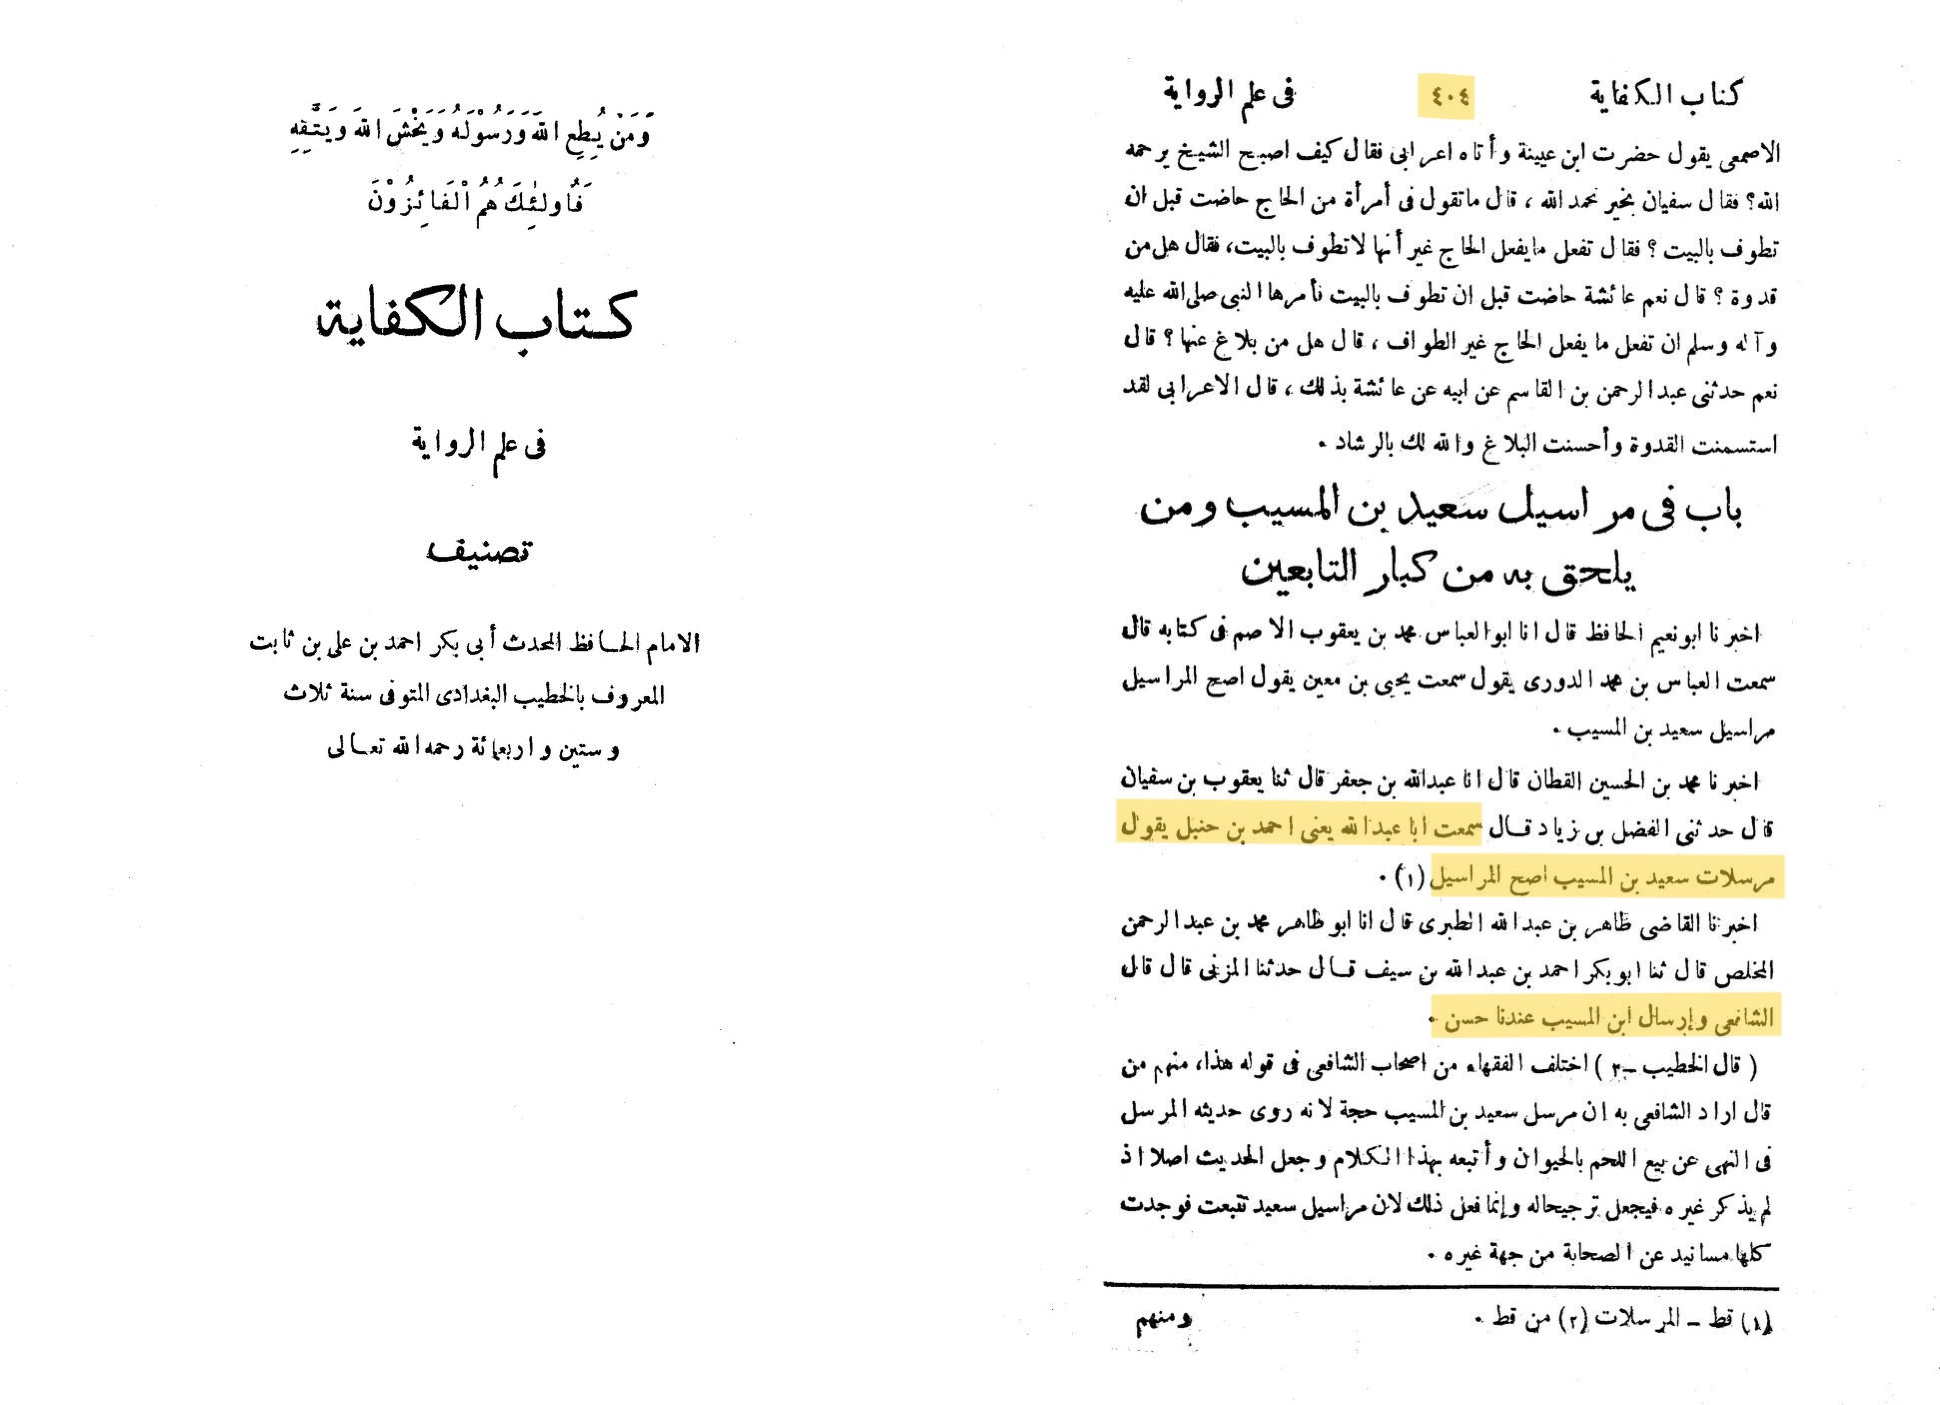 وَمَنْ يُطِعِ اللهَ وَرَسُوْلَهُ وَيَخْشَ اللهَ وَيَتَّقْهِ
فَأُولٰئِكَ هُمُ الْفَائِزُوْنَ
كتاب الكفاية
فى علم الرواية
تصنيف
الامام الحافظ المحدث أبى بكر احمد بن على بن ثابت
المعروف بالخطيب البغدادى المتوفى سنة ثلاث
وستين واربعمائة رحمه الله تعالى
كتاب الكفاية ٤٠٤ فى علم الرواية
الاصمعى يقول حضرت ابن عيينة وأتاه اعرابى فقال كيف اصبح الشيخ يرحمه
الله؟ فقال سفيان بخير نحمد الله ، قال ماتقول فى أمرأة من الحاج حاضت قبل ان
تطوف بالبيت ؟ فقال تفعل مايفعل الحاج غير أنها لاتطوف بالبيت، فقال هل من
قدوة ؟ قال نعم عائشة حاضت قبل ان تطوف بالبيت فأمرها النبى صلى الله عليه
وآله وسلم ان تفعل ما يفعل الحاج غير الطواف ، قال هل من بلاغ عنها ؟ قال
نعم حدثنى عبد الرحمن بن القاسم عن ابيه عن عائشة بذلك ، قال الاعرابى لقد
استسمنت القدوة وأحسنت البلاغ والله لك بالرشاد .
باب فى مراسيل سعيد بن المسيب ومن
يلحق به من كبار التابعين
اخبرنا ابو نعيم الحافظ قال انا ابو العباس محمد بن يعقوب الاصم فى كتابه قال
سمعت العباس بن محمد الدورى يقول سمعت يحيى بن معين يقول اصح المراسيل
مراسيل سعيد بن المسيب .
اخبرنا محمد بن الحسين القطان قال انا عبدالله بن جعفر قال ثنا يعقوب بن سفيان
قال حدثنى الفضل بن زياد قال سمعت ابا عبد الله يعنى احمد بن حنبل يقول
مرسلات سعيد بن المسيب اصح المراسيل (١) .
اخبرنا القاضى طاهر بن عبد الله الطبرى قال انا ابو طاهر محمد بن عبد الرحمن
المخلص قال ثنا ابو بكر احمد بن عبد الله بن سيف قال حدثنا المزنى قال قال
الشافعى وإرسال ابن المسيب عندنا حسن .
( قال الخطيب ـ ٢ ) اختلف الفقهاء من اصحاب الشافعى فى قوله هذا، منهم من
قال اراد الشافعى به ان مرسل سعيد بن المسيب حجة لانه روى حديثه المرسل
فى النهى عن بيع اللحم بالحيوان وأتبعه بهذا الكلام وجعل الحديث اصلا اذ
لم يذكر غيره فيجعل ترجيحاله وإنما فعل ذلك لان مراسيل سعيد تتبعت فوجدت
كلها مسانيد عن الصحابة من جهة غيره .
(١) قط ـ المرسلات (٢) من قط .
ومنهم